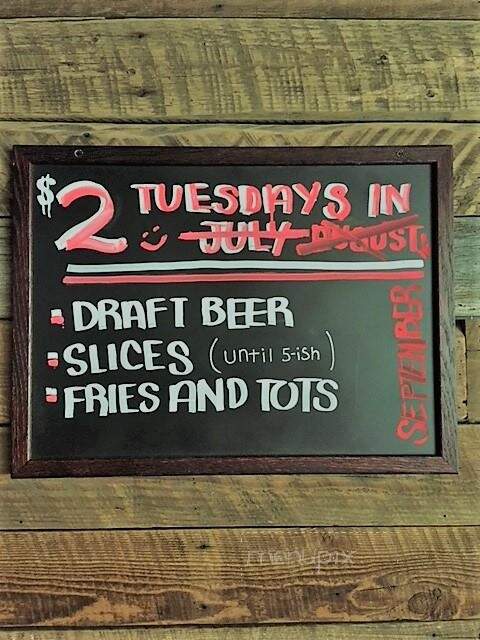 $2 TUESDAYS IN
JULY AUGUST
SEPTEMBER
DRAFT BEER
SLICES (until 5-ish)
FRIES AND TOTS
menupix